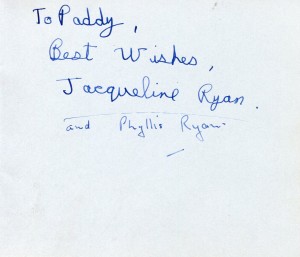 To Paddy,
Best Wishes,
Jacqueline Ryan.
and Phyllis Ryan